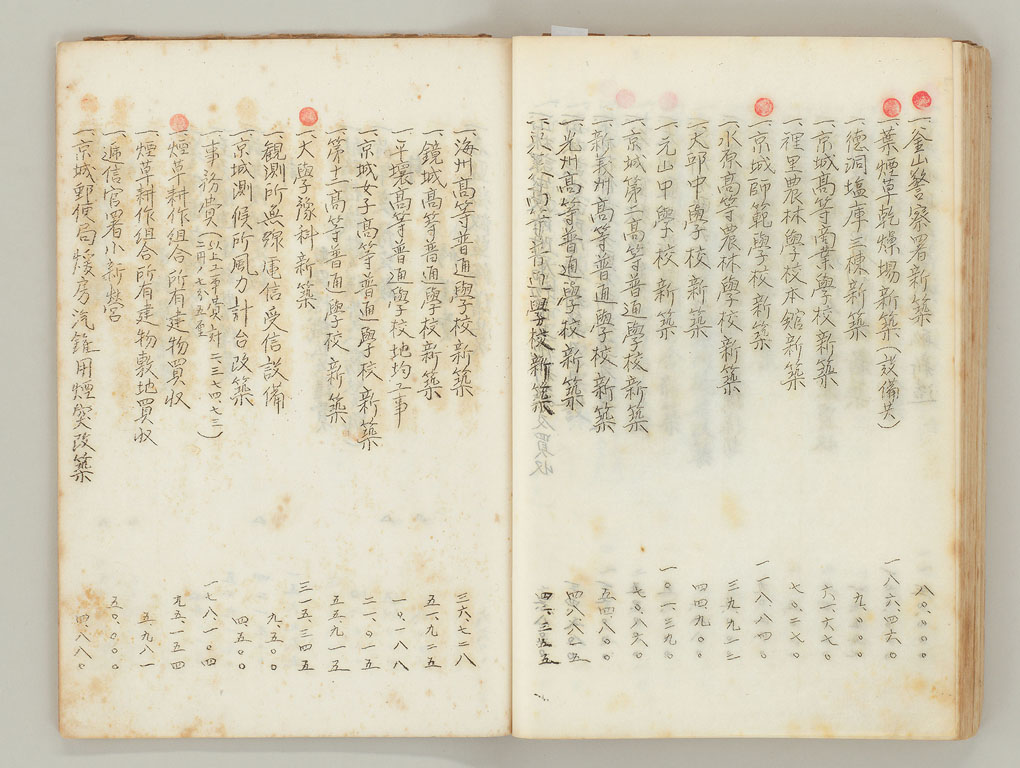 一、釜山警察署新築 八〇、〇〇〇
一、葉煙草乾燥場新築(設備共) 一八六、四六〇
一、徳洞塩庫三棟新築 九、〇〇〇
一、京城高等商業學校新築
一、裡里農林學校本館新築 七〇、二七〇
一、京城師範學校新築 一一八、八四〇
一、水原高等農林學校新築 三九、九三三
一、大邱中學校新築 四四、九〇〇
一、元山中學校新築 一〇一、三九〇
一、京城第二高等普通學校新築
一、新義州高等普通學校新築 五四、八〇〇
一、光州高等普通學校新築 四八、八一五
高等普通學校新築
一、海州高等普通學校新築 三六、七二八
一、鏡城高等普通學校新築 五一、九二五
一、平壤高等普通學校地均工事 一〇、一八八
一、京城女子高等普通學校新築 二一、〇一五
一、第十一高等普通學校新築 五五、九一五
一、大學豫科新築 三一五、三四五
一、観測所無線電信受信設備 九、五〇〇
一、京城測候所風力計台改築 四五〇〇
一、事務費 一七八、一〇四
一、煙草耕作組合所有建物買収 九五、一五四
一、煙草耕作組合所有建物敷地買収 五、九八一
一、逓信官署小新営 五〇、〇〇〇
一、京城郵便局煖房汽鑵用煙突改築 四、八八〇